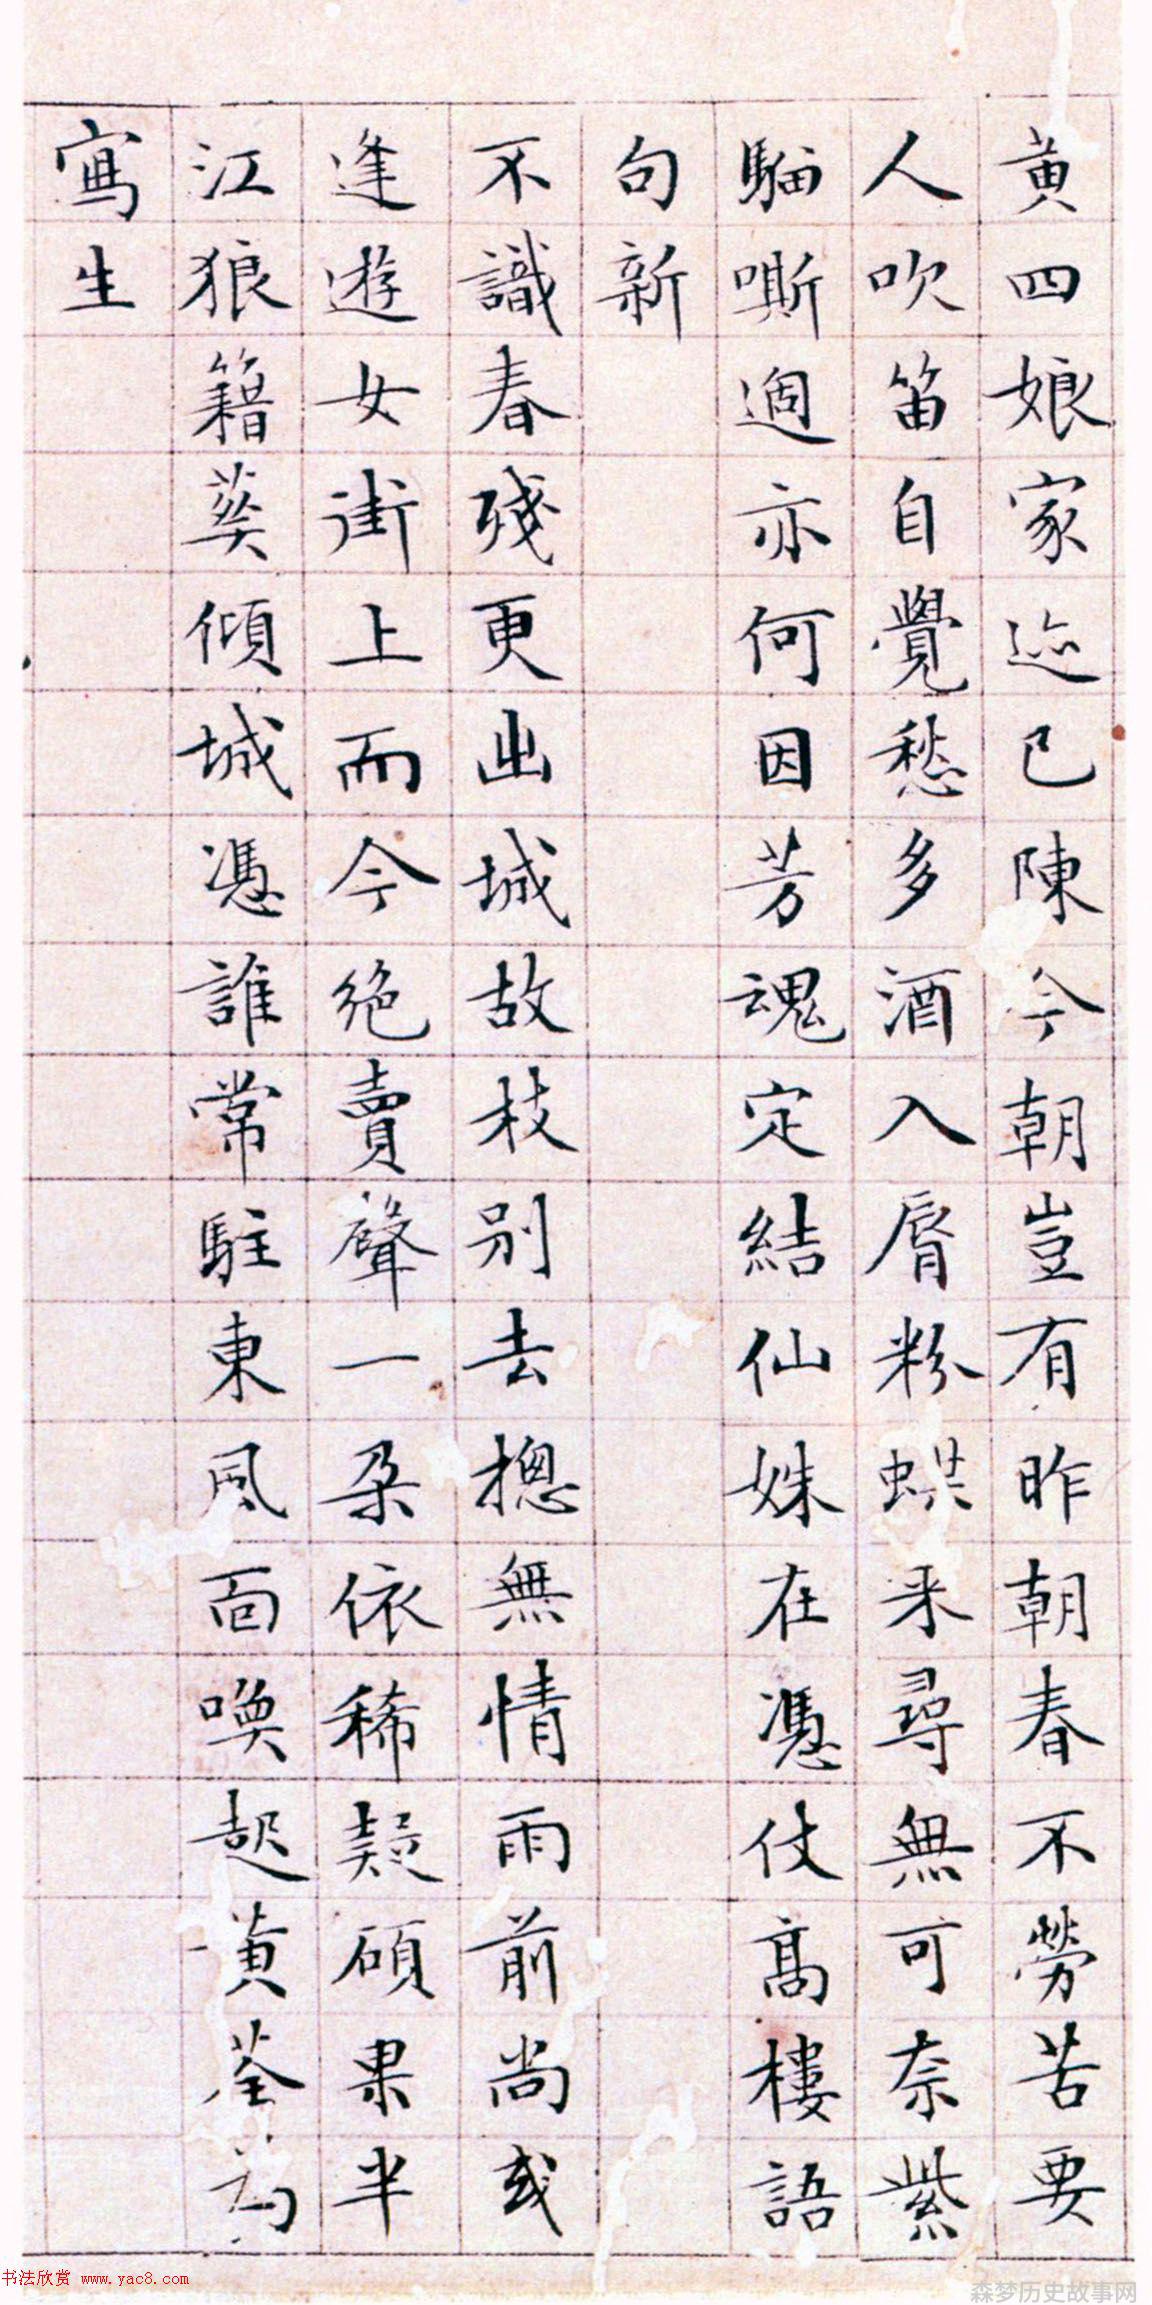 黄四娘家迹已陳今朝豈有昨朝春不勞苦要
人吹笛自覺愁多酒入脣粉蜨来尋無可奈紫
騮嘶過亦何因芳魂定結仙姝在憑仗髙樓語
句新
不識春殘更出城故枝别去摠無情雨前尚或
逢遊女街上而今绝賣聲一朶依稀疑碩果半
江狼籍葬傾城憑誰常駐東風面喚起黄荃為
寫生
书法欣赏 www.yac8.com
森梦历史故事网